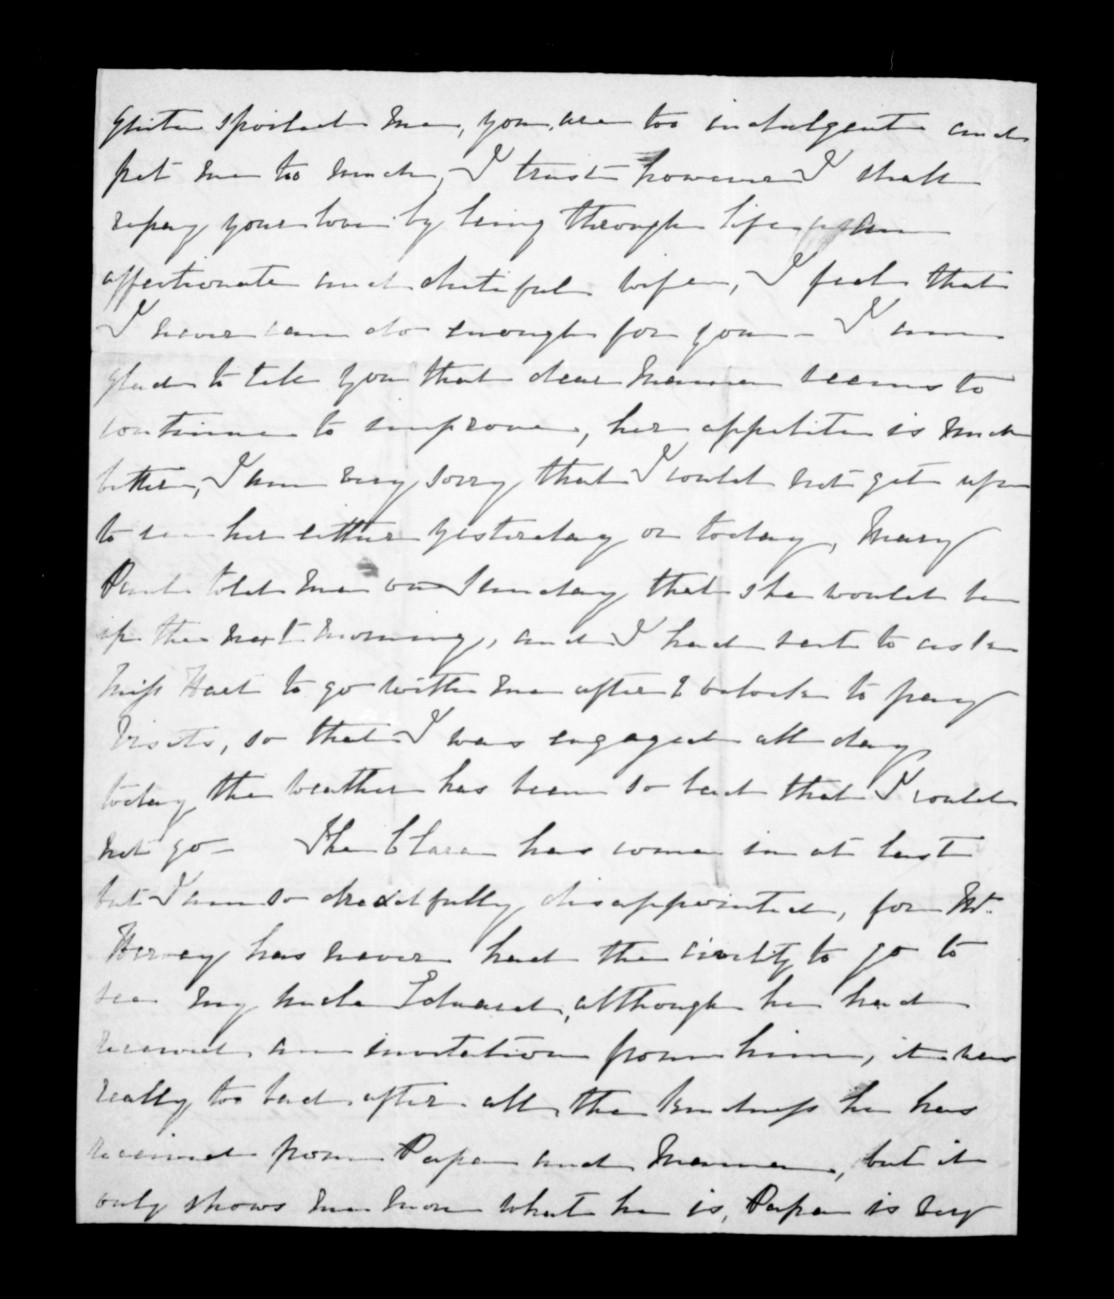 quite spoiled me, you are too indulgent and
pet me too much, I trust however I shall
repay your love by being through life an
affectionate and dutiful wife, I feel that
I never can do enough for you – I am
glad to tell you that dear Mamma seems to
continue to improve, her appetite is much
better, I am very sorry that I could not get up
to see her either yesterday or today, Mary
told me on Sunday that she would be
up the next morning, and I had sent to ask
Miss Hart to go with me after 2 oclock to pay
visits, so that I was engaged all day,
today the weather has been so bad that I could
not go – The Clara has come in at last
but I am so dreadfully disappointed, for Mr.
Hervey has never had the civility to go to
see my Uncle Edward, although he had
received an invitation from him, it was
really too bad after all the kindness he has
received from Papa and Mamma, but it
only shows me more what he is, Papa is very